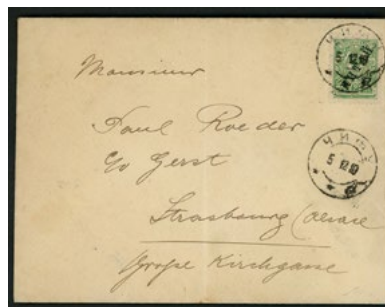 Monsieur
Paul Roeder
c/o Gerst
Strasbourg (Alsace
Große Kirchgasse
ЧИФУ
5 12 10
ЧИФУ
5 12 10